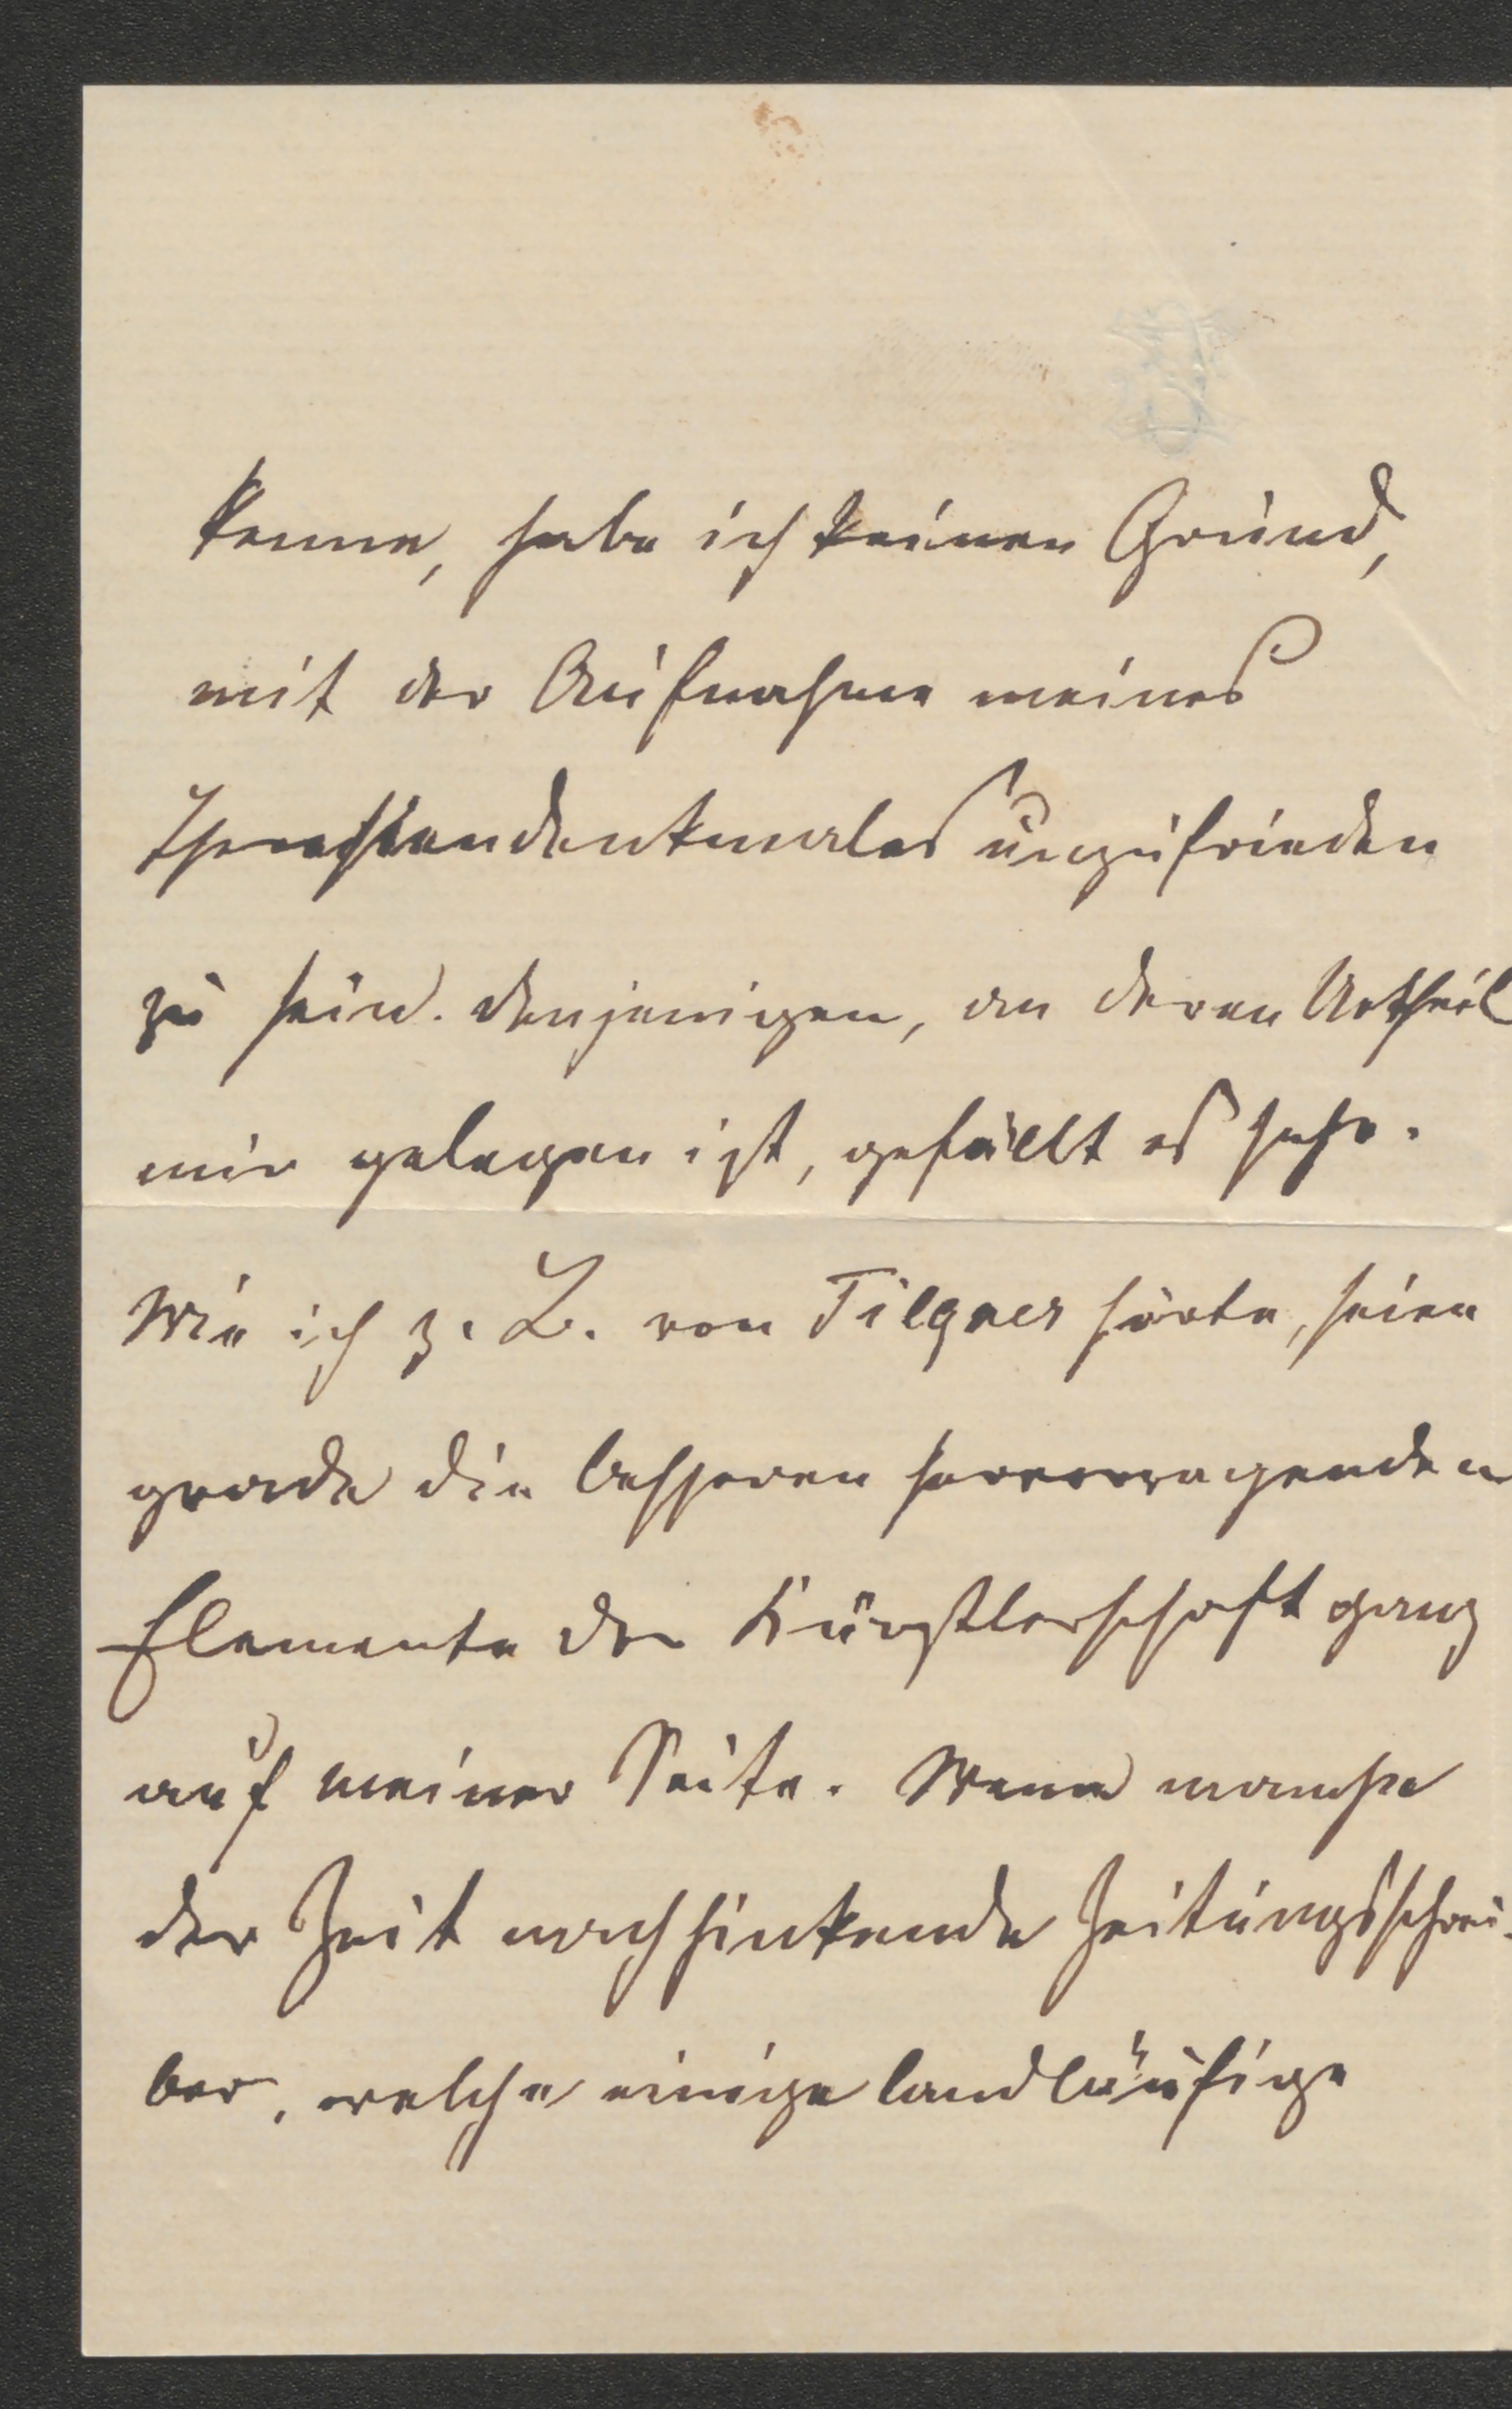 kenne, habe ich keinen Grund,
mit der Aufnahme meines
Theresiendenkmales unzufrieden
zu sein. Denjenigen, an deren Urtheil
mir gelegen ist, gefällt es sehr.
Wie ich z. B. von Tilgner hörte, seien
grade die besseren hervorragenden
Elemente der Künstlerschaft ganz
auf meiner Seite. Wenn manche
der Zeit nachhinkende Zeitungsschrei-
ber, welche einige landläufige